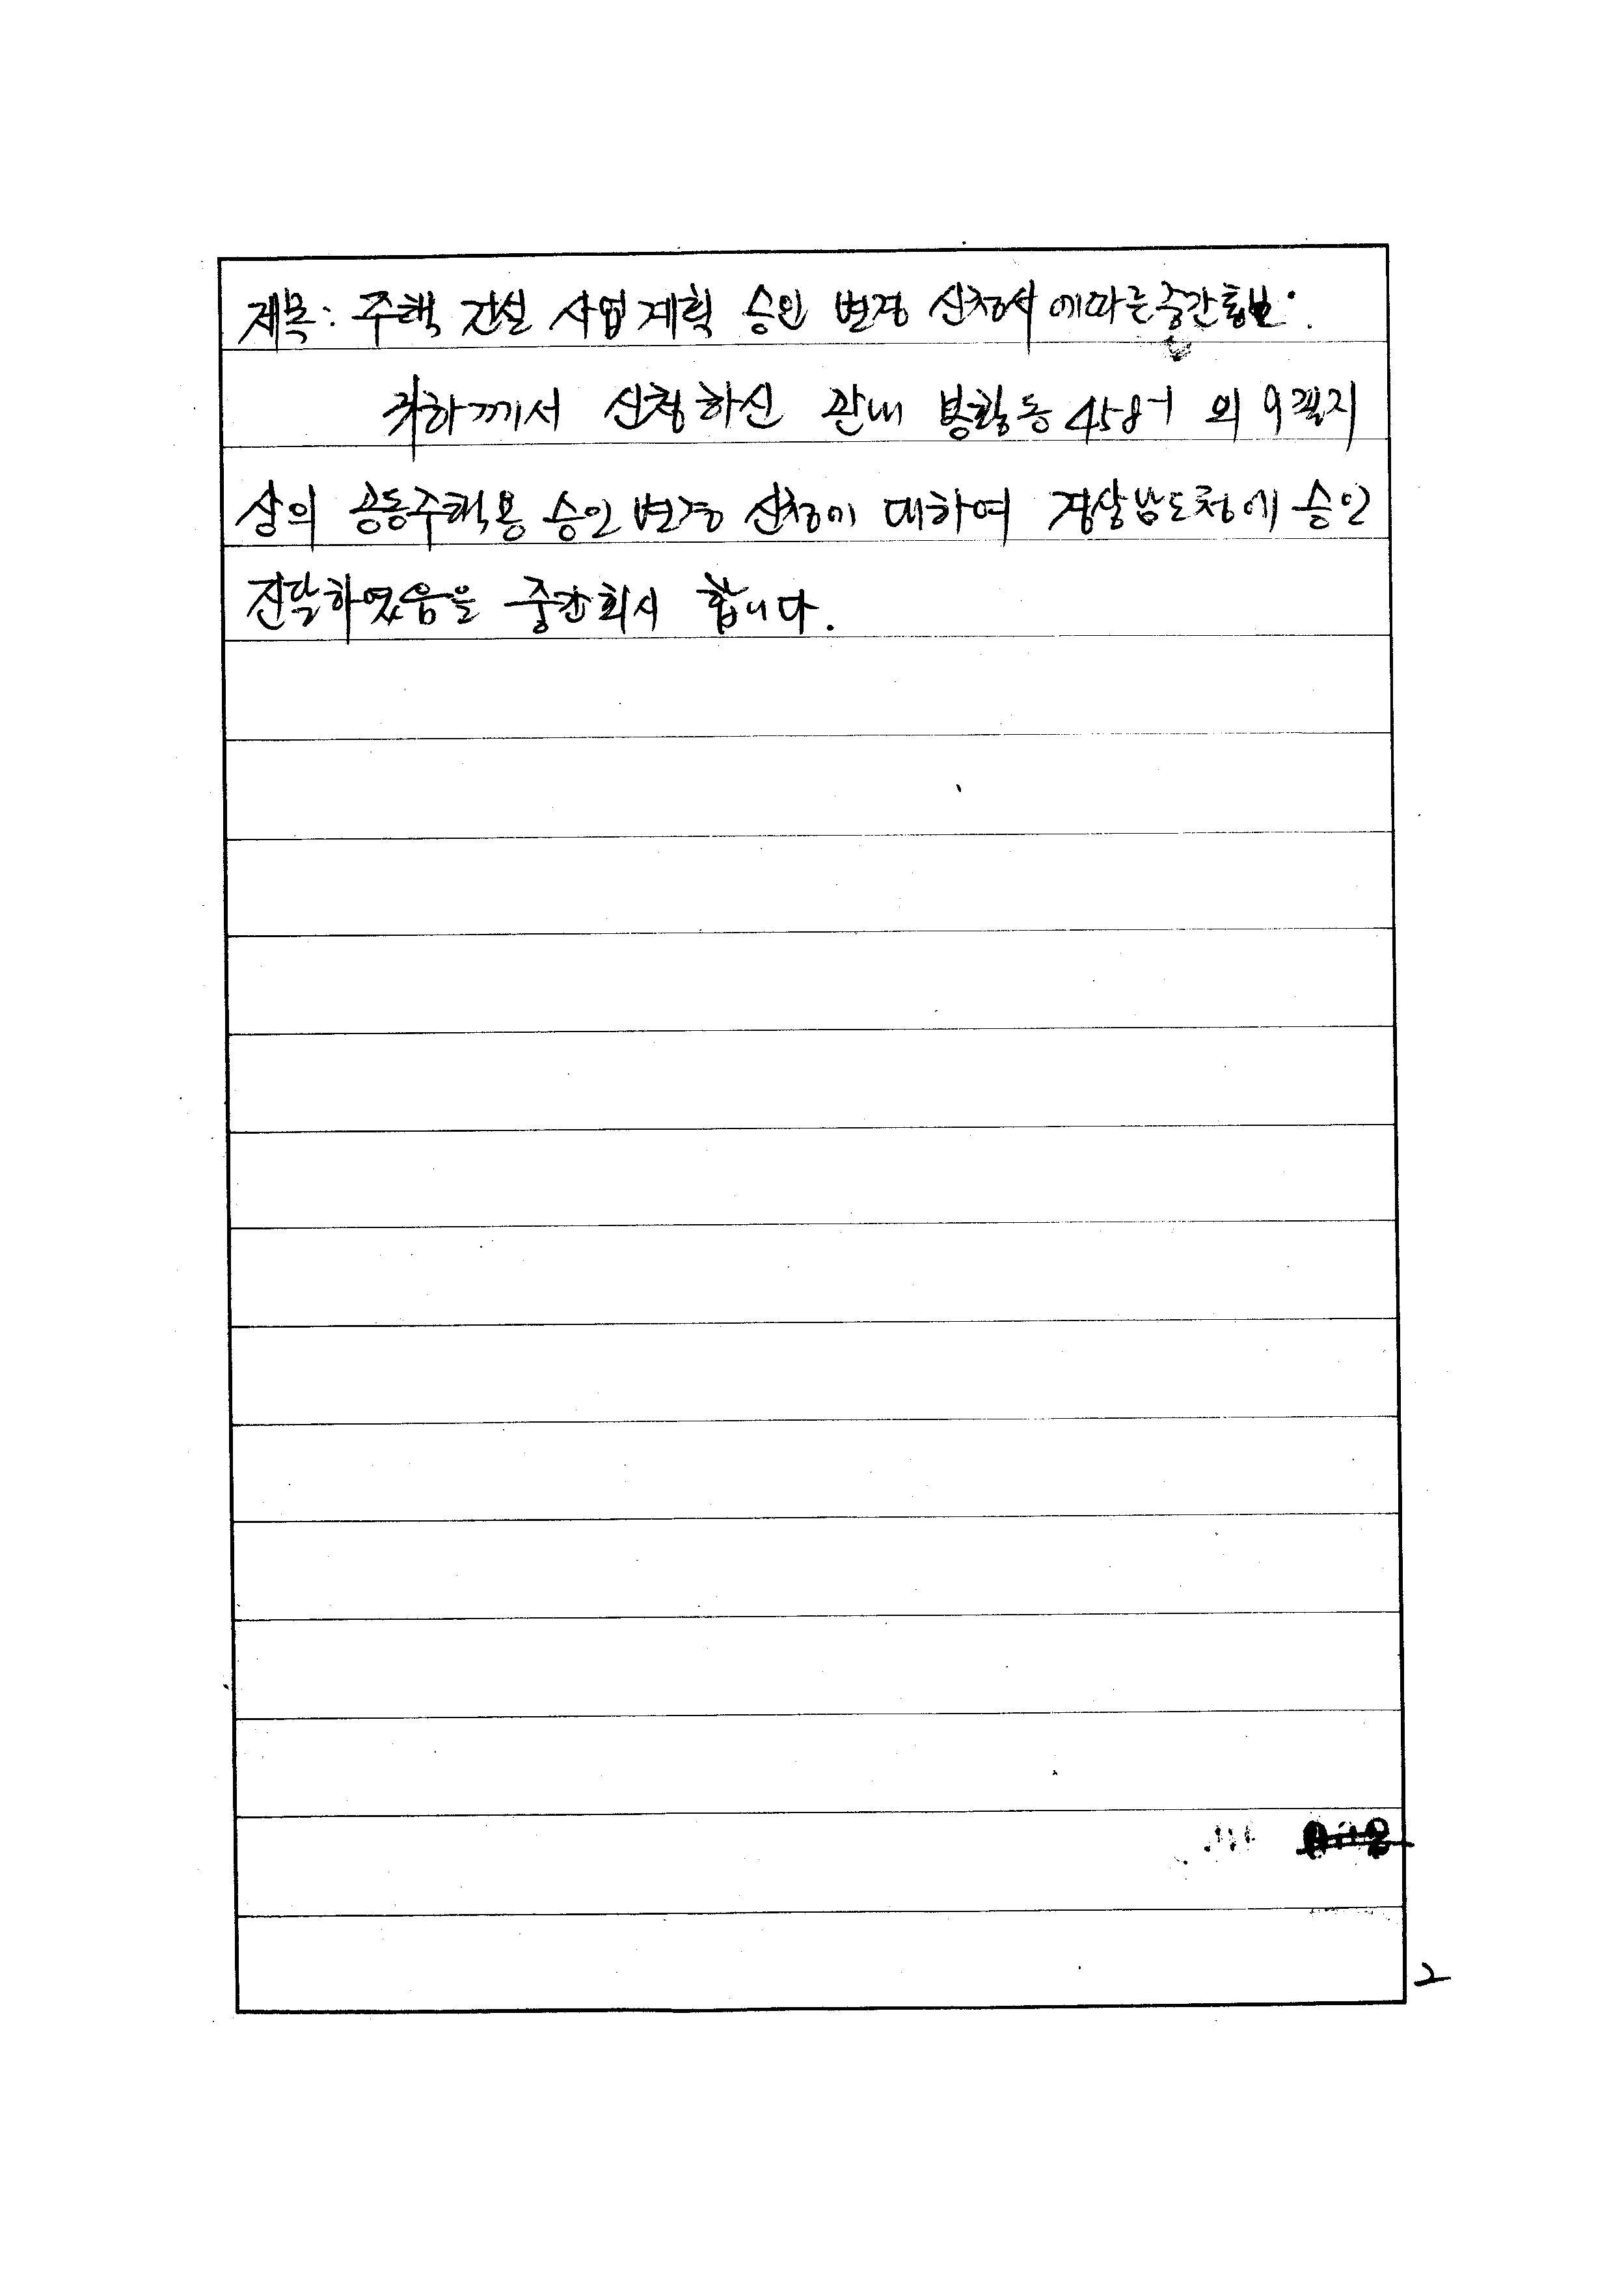 제목: 주택 건설 사업계획 승인 변경 신청서 에따른 중간통보.
귀하께서 신청하신 관내 봉황동 458-1 외 9필지
상의 공동주택용 승인변경 신청에 대하여 경상남도청에 승인
진달하였음을 중간회시 합니다.
2